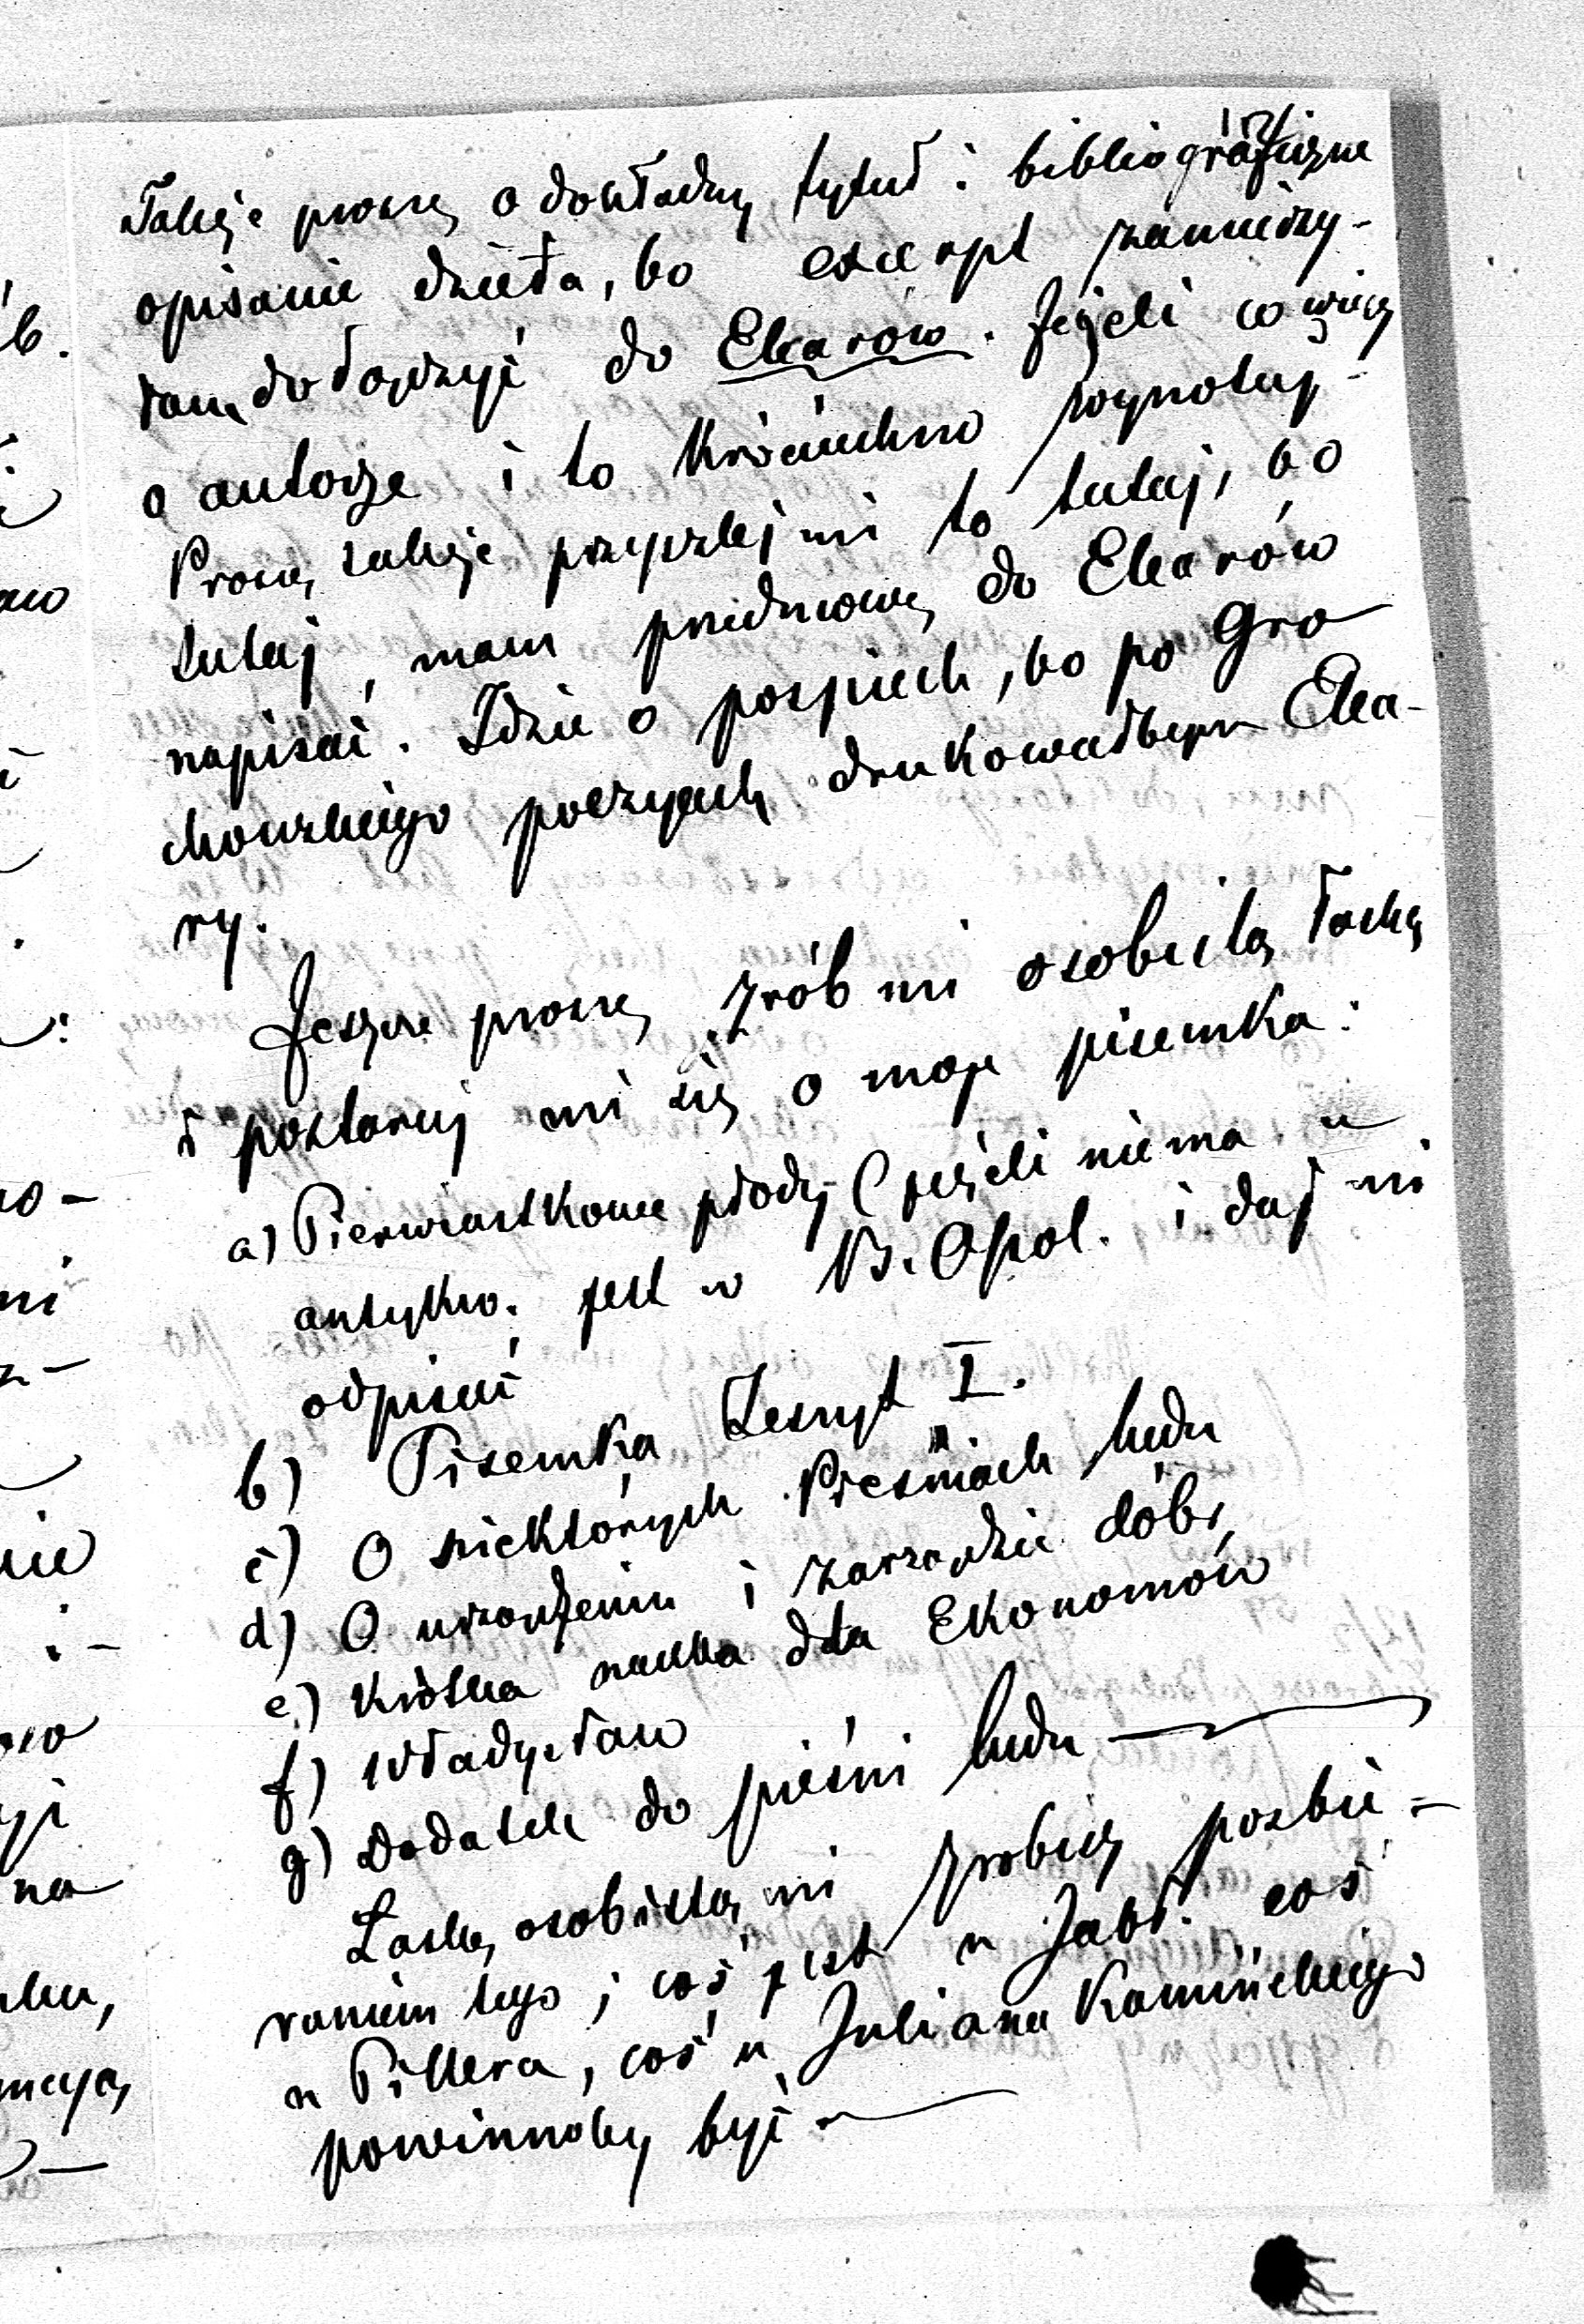 Także proszę o dokładny tytuł i bibliograficzne
opisanie dzieła, bo excerpt zamierzy-
łam dołączyć do Elearów. Jeżeli co więcej
o autorze i to króciuchno wynotuj-
Proszę także przyszlej mi to tutaj, bo
tutaj mam przedmowę do Elearów
napisać. Idzie o pośpiech, bo po Gro
chowskiego poezyach drukowałbym Elea-
ry.
Jeszcze proszę, zrób mi osobistą łaskę
i postaraj mi się o moje pisemka:
a) Pierwiastkowe płody (jeżeli niema u
antykw. jest w B. Opol. i daj mi
odpisać
b) Pisemka Zeszyt I.
c) O niektórych Pieśniach ludu
d) O urządzeniu i zarządzie dóbr
e) Krótka nauka dla Ekonomów
f) Władysław
g) Dodatek do pieśni ludu
Łaskę osobistą mi zrobisz pozbie-
raniem tego; coś jest u Jabł. coś
u Pillera, coś u Juliana Kamińskiego
powinnoby być